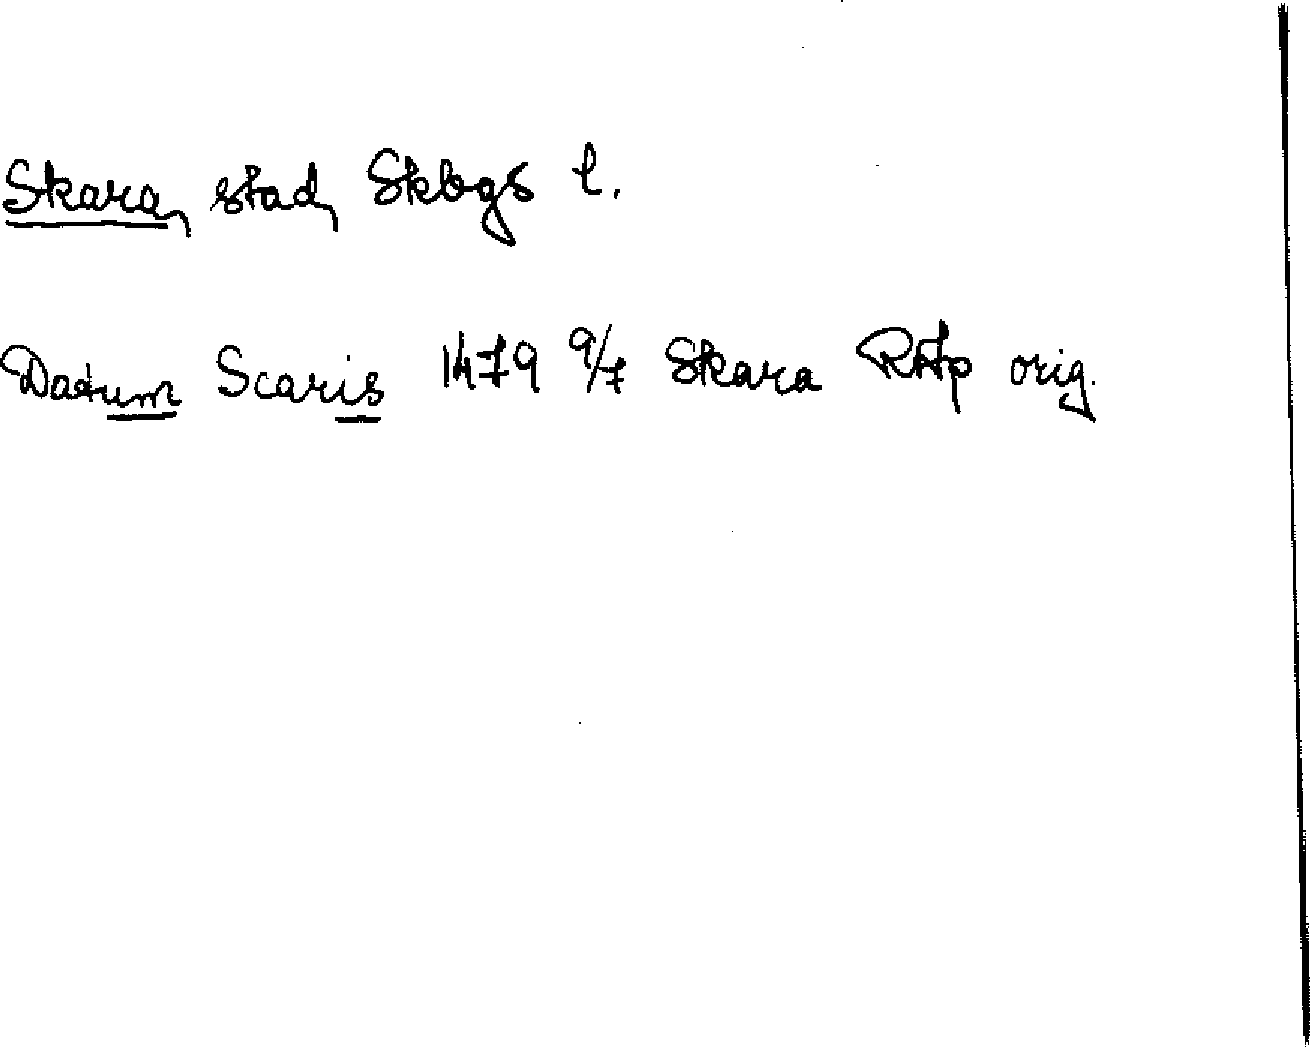 Skara, stad, Skbgs l.
Datum Scaris 1479 9/7 Skara RAp orig.